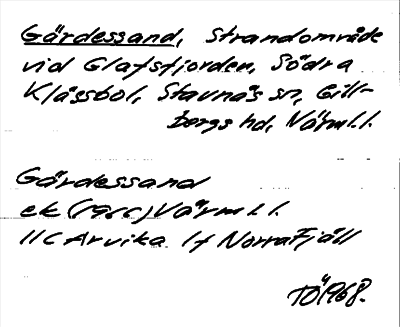 Gärdessand, Strandområde
vid Glafsfjorden, Södra
Klässbol, Stavnäs sn, Gill-
bergs hd, Värml.
Gärdessand
ek (1966) Värml.
11C Arvika 1f Norra Fjäll
TÖ 1968.